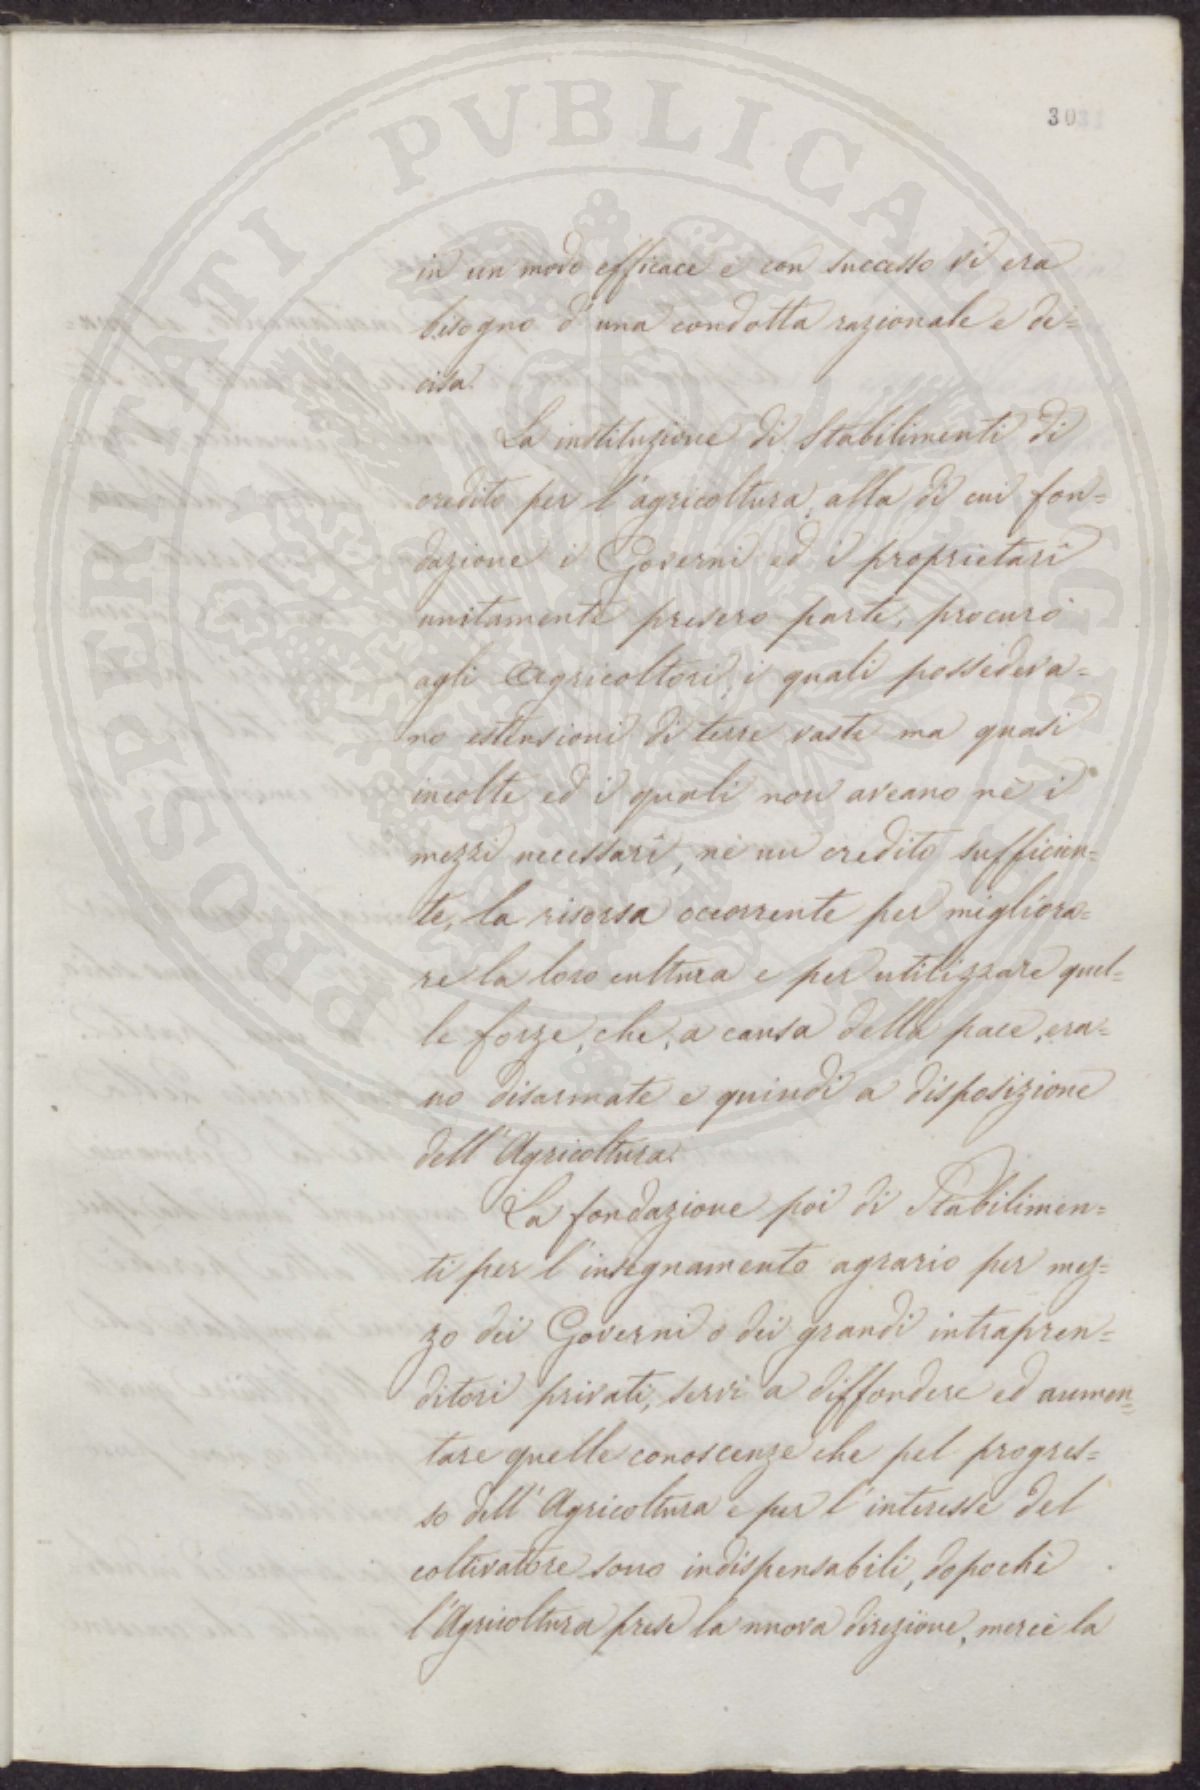 303
in un modo efficace e con successo vi era
bisogno d'una condotta razionale e de=
cisa.
La instituzione di Stabilimenti di
credito per l'agricoltura, alla di cui fon=
dazione i Governi ed i proprietarî
unitamente presero parte, procurò
agli Agricoltori, i quali possedeva=
no estensioni di terre vaste ma quasi
incolte ed i quali non aveano nè i
mezzi necessarî, nè un credito sufficien=
te, la risorsa occorrente per migliora=
re la loro cultura e per utilizzare quel=
le forze, che, a causa della pace, era=
no disarmate e quindi a disposizione
dell'Agricoltura.
La fondazione poi di Stabilimen=
ti per l'insegnamento agrario per mez=
zo dei Governi o dei grandi intrapren=
ditori privati, servì a diffondere ed aumen=
tare quelle conoscenze che pel progres=
so dell'Agricoltura e per l'interesse del
coltivatore sono indispensabili, dopochè
l'Agricoltura prese la nuova direzione, mercè la
PROSPERITATI PVBLICAE AVGENDAE